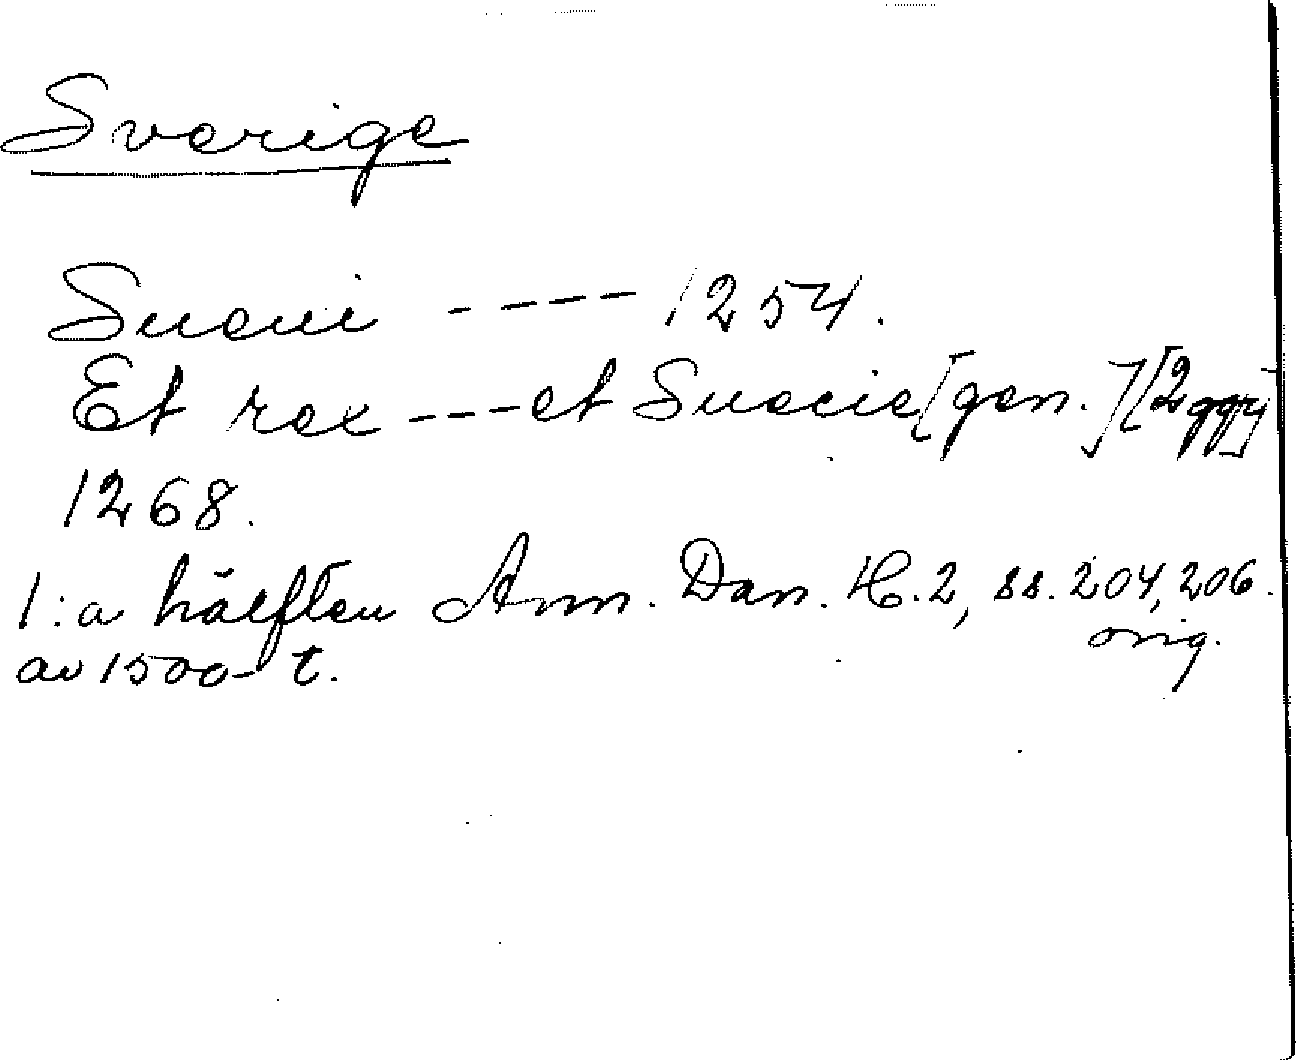 Sverige
Sueui ---- 1254.
Et rex --- et Suecie [gen.] [2 ggr]
1268.
1:a hälften Ann. Dan. H. 2, ss. 204, 206.
av 1500-t. orig.